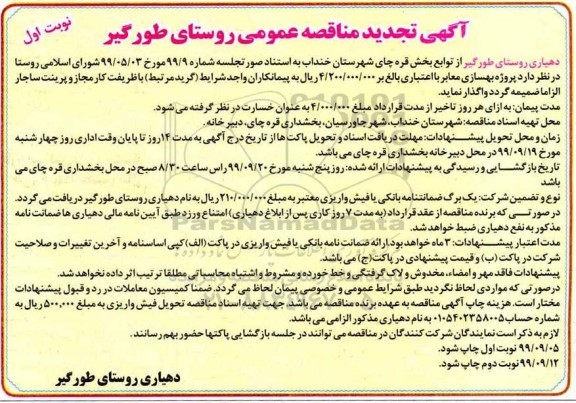 نوبت اول
آگهی تجدید مناقصه عمومی روستای طور گیر
دهیاری روستای طورگیر از توابع بخش قره چای شهرستان خنداب به استناد صورتجلسه شماره ۹۹/۹ مورخ ۹۹/۰۵/۰۳ شورای اسلامی روستا
در نظر دارد پروژه بهسازی معابر با اعتباری بالغ بر ۴/۲۰۰/۰۰۰/۰۰۰ ریال به پیمانکاران واجد شرایط (گرید مرتبط) با ظرفیت کار مجاز و پرینت ساجار
الزاما ضمیمه گردد واگذار نماید.
مدت پیمان: به ازای هر روز تاخیر از مدت قرارداد مبلغ ۴/۰۰۰/۰۰۰ به عنوان خسارت در نظر گرفته می شود.
محل تهیه اسناد مناقصه: شهرستان خنداب، شهر جاورسیان، بخشداری قره چای، دبیرخانه
زمان و محل تحویل پیشنهادات: مهلت دریافت اسناد و تحویل پاکت ها از تاریخ درج آگهی به مدت ۱۴ روز تا پایان وقت اداری روز چهار شنبه
مورخ ۹۹/۰۹/۱۹ در محل دبیرخانه بخشداری قره چای می باشد.
تاریخ بازگشایی و رسیدگی به پیشنهادات ارائه شده: روز پنج شنبه مورخ ۹۹/۰۹/۲۰ راس ساعت ۸/۳۰ صبح در محل بخشداری قره چای می
باشد
نوع و تضمین شرکت: یک برگ ضمانتنامه بانکی یا فیش واریزی معتبر به مبلغ ۲۱۰/۰۰۰/۰۰۰ ریال به نام دهیاری روستای طور گیر دریافت می گردد.
در صورتی که برنده مناقصه از عقد قرارداد (به مدت ۷ روز کاری پس از ابلاغ دهیاری) امتناع ورزد طبق آیین نامه مالی دهیاری ها ضمانت نامه
مذکور به نفع دهیاری ضبط خواهد شد.
مدت اعتبار پیشنهادات: ۳ ماه خواهد بود. ارائه ضمانت نامه بانکی یا فیش واریزی در پاکت (الف) کپی اساسنامه و آخرین تغییرات و صلاحیت
شرکت در پاکت (ب) و قیمت پیمانی در پاکت (ج) می باشد.
پیشنهادات فاقد مهر و امضاء، مخدوش و لاک گرفتگی و خط خورده و مشروط و اشتباه محاسباتی مطلقا ترتیب اثر داده نخواهد شد.
در صورتی که مواردی لحاظ نگردید طبق شرایط عمومی و خصوصی پیمان لحاظ می گردد. ضمنا کمیسیون معاملات در رد و قبول پیشنهادات
مختار است. هزینه چاپ آگهی مناقصه به عهده برنده مناقصه می باشد. جهت تهیه اسناد مناقصه تحویل فیش واریزی به مبلغ ۵۰۰,۰۰۰ ریال به
شماره حساب ۰۱۰۵۴۰۲۳۵۸۰۰۵ به نام دهیاری مذکور الزامی می باشد.
لازم به ذکر است نمایندگان شرکت کنندگان در مناقصه می توانند در جلسه بازگشایی پاکتها حضور بهم رسانند.
۹۹/۰۹/۰۵ نوبت اول چاپ شود.
۹۹/۰۹/۱۲ نوبت دوم چاپ شود.
دهیاری روستای طور گیر
ParsNamadData